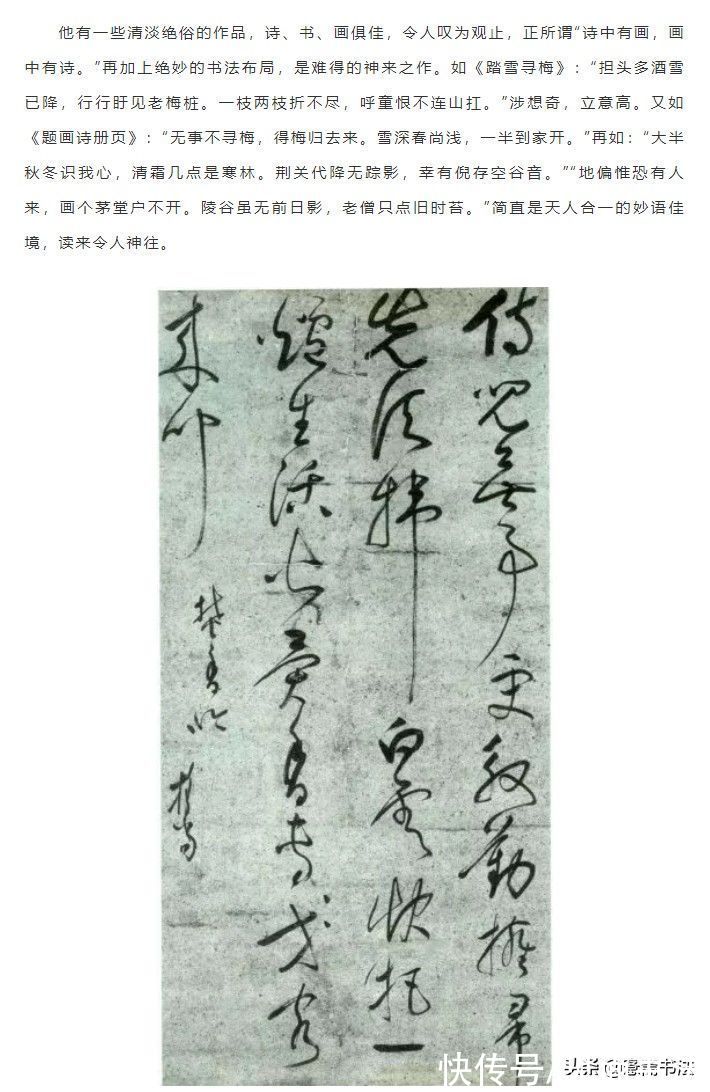 他有一些清淡绝俗的作品，诗、书、画俱佳，令人叹为观止，正所谓“诗中有画，画
中有诗。”再加上绝妙的书法布局，是难得的神来之作。如《踏雪寻梅》：“担头多酒雪
已降，行行盱见老梅桩。一枝两枝折不尽，呼童恨不连山扛。”涉想奇，立意高。又如
《题画诗册页》：“无事不寻梅，得梅归去来。雪深春尚浅，一半到家开。”再如：“大半
秋冬识我心，清霜几点是寒林。荆关代降无踪影，幸有倪存空谷音。”“地偏惟恐有人
来，画个茅堂户不开。陵谷虽无前日影，老僧只点旧时苔。”简直是天人合一的妙语佳
境，读来令人神往。
侍兒無事更殷勤擁帚
先須白雲一
爐生活火香客
來
焚香吟 担當
快传号/
头条 书法